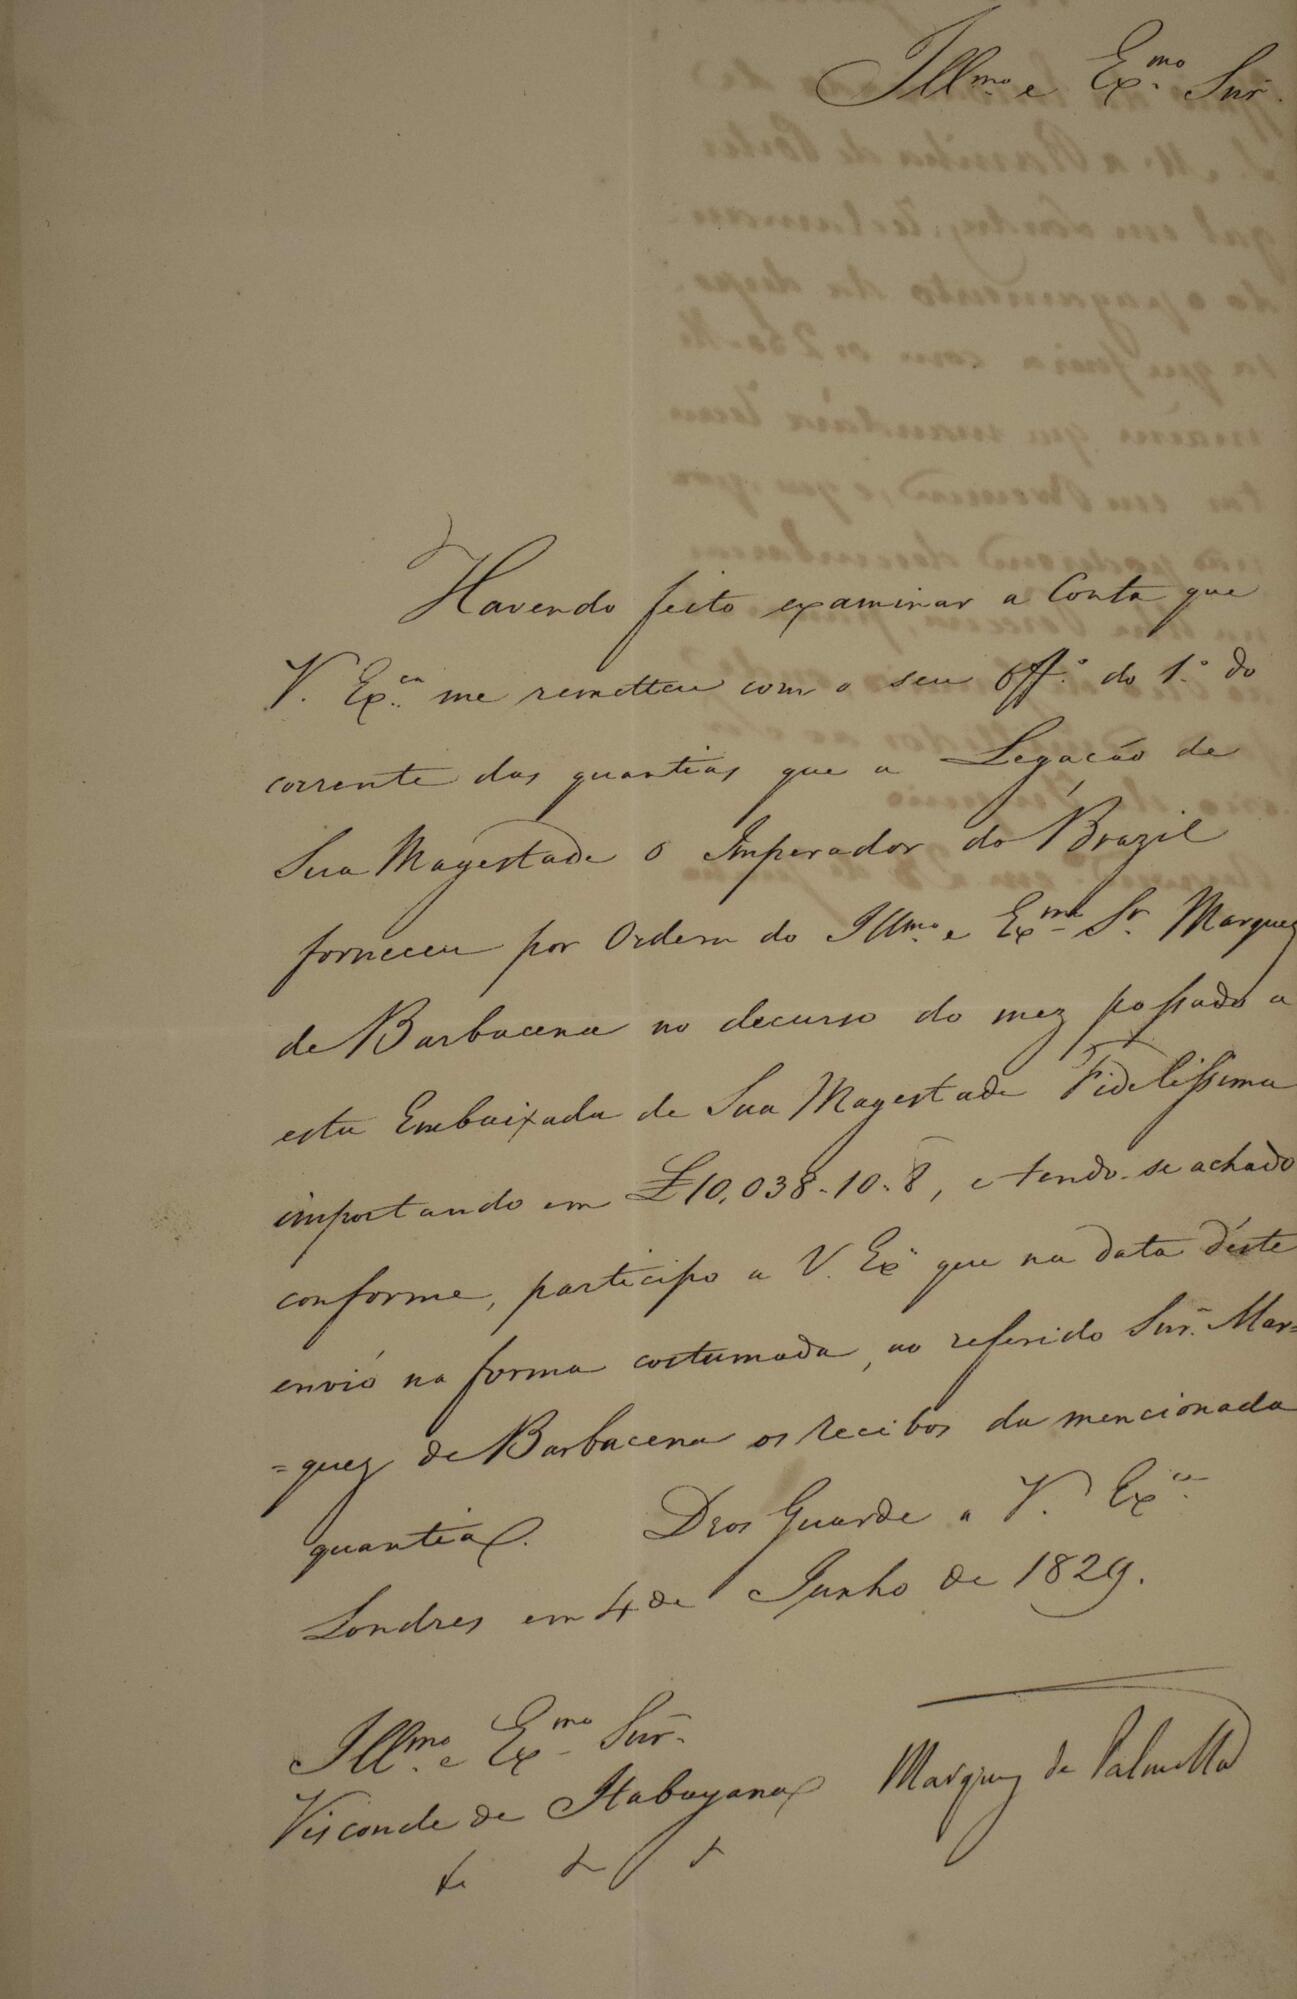 Illmo. e Exmo. Snr.
Havendo feito examinar a Conta que
V. Exca. me remetteu com o seu Offo. do 1o. do
corrente das quantias que a Legacão de
Sua Magestade o Imperador do Brazil
forneceu por Ordem do Illmo. e Exmo. Sr. Marquez
de Barbacena no decurso do mez passado a
esta Embaixada de Sua Magestade Fidelissima
importando em £10,038-10-8, e tendo-se achado
conforme, participo a V. Exa. que na data d'este
envio na forma costumada, ao referido Snr. Mar=
=quez de Barbacena os recibos da mencionada
quantia. Deos Guarde a V. Exca.
Londres em 4 de Junho de 1829.
Illmo. e Exmo. Snr.
Visconde de Itabayana
Marquez de Palmella